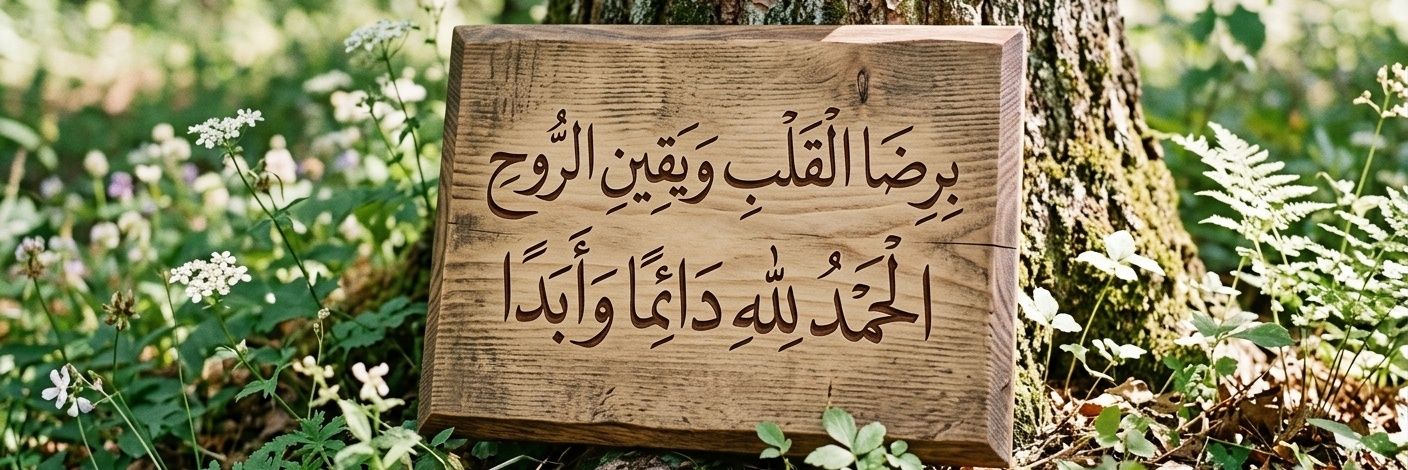 بِرِضَا الْقَلْبِ وَيَقِينِ الرُّوحِ
الْحَمْدُ لِلّٰهِ دَائِمًا وَأَبَدًا